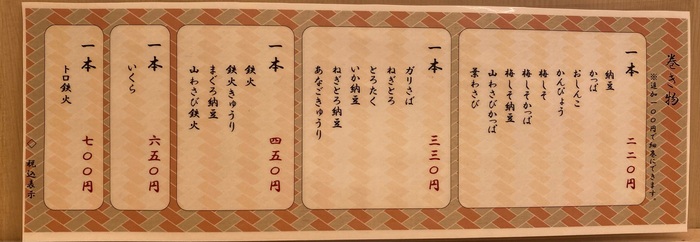 巻き物
※追加一〇〇円で細巻にできます。
一本 二二〇円
納豆
かっぱ
おしんこ
かんぴょう
梅しそ
梅しそかっぱ
梅しそ納豆
山わさびかっぱ
葉わさび
一本 三三〇円
ガリさば
ねぎとろ
とろたく
いか納豆
ねぎとろ納豆
あなごきゅうり
一本 四五〇円
鉄火
鉄火きゅうり
まぐろ納豆
山わさび鉄火
一本 六五〇円
いくら
一本 七〇〇円
トロ鉄火
◇税込表示